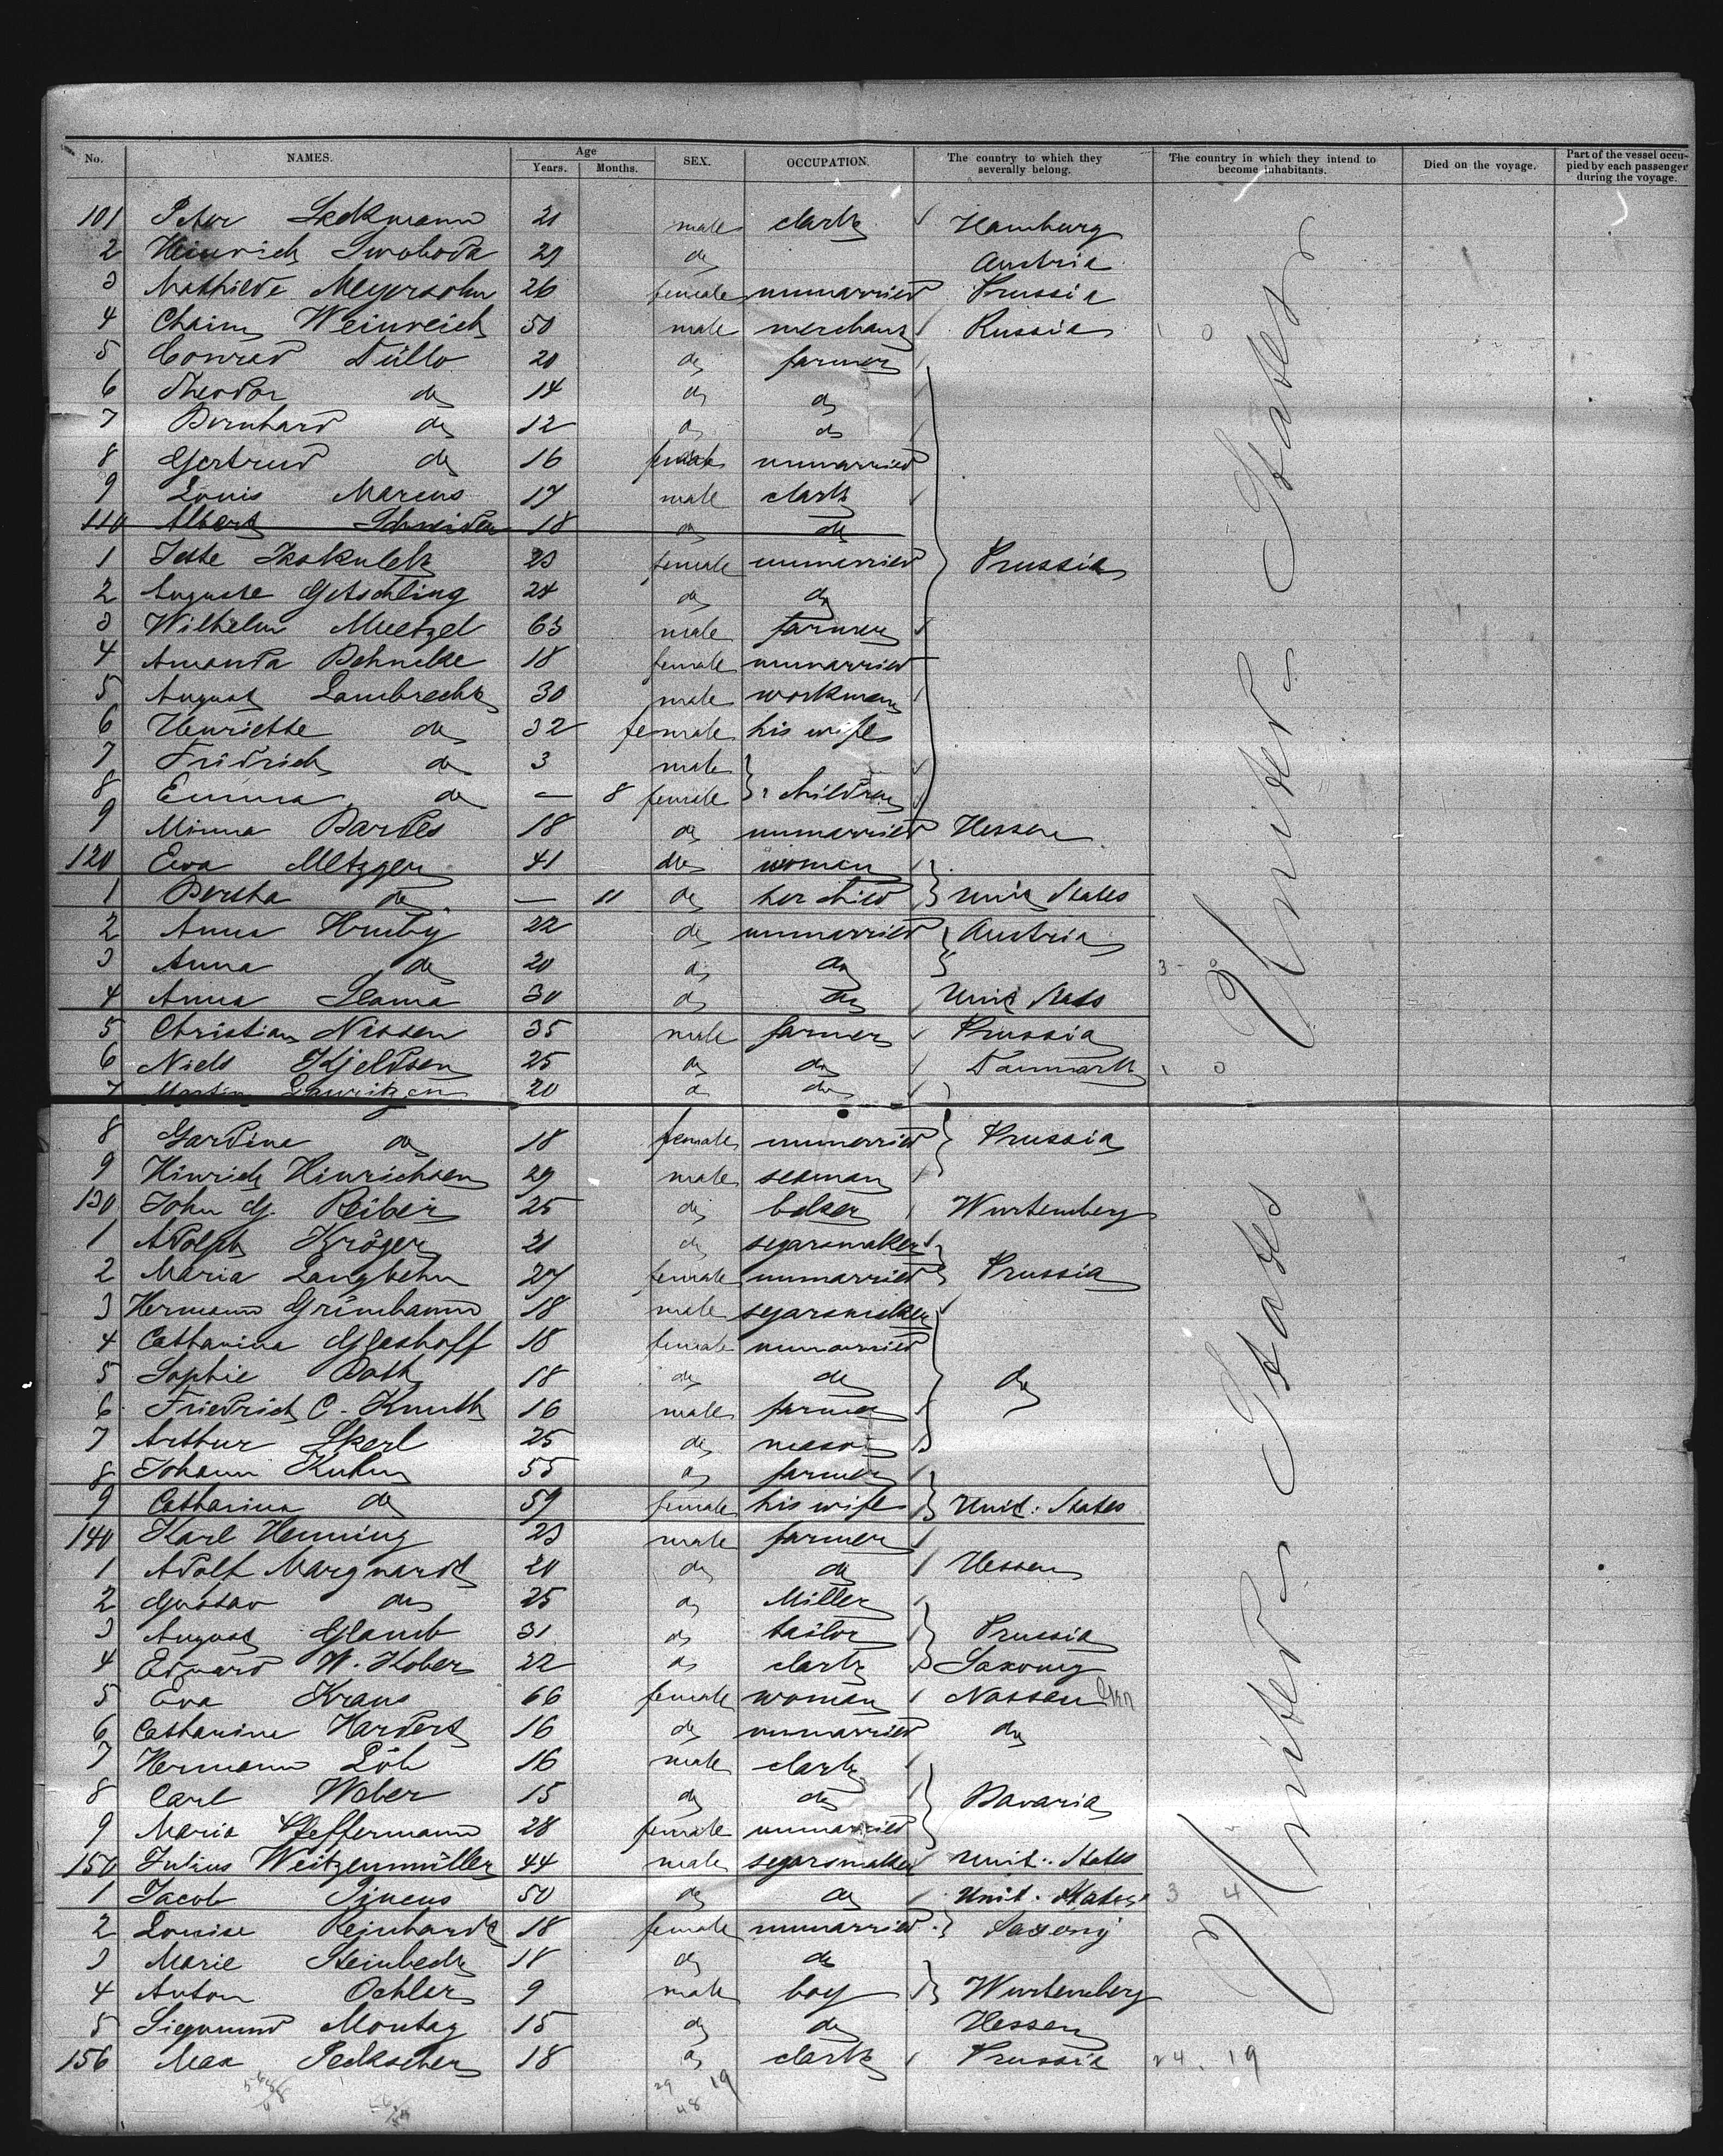 No. NAMES. Age Years. Months. SEX. OCCUPATION. The country to which they severally belong. The country in which they intend to become inhabitants. Died on the voyage. Part of the vessel occupied by each passenger during the voyage.
101 Peter 21 male clark Hamburg
2 Heinrich Swoboda 29 do Austria
3 Mathilde Meyersohn 26 female unmarried Prussia
4 Chaim Weinreich 50 male merchant Russia
5 Conrad Düllo 20 do farmer
6 Theodor do 14 do do
7 Bernhard do 12 do do
8 Gertrud do 16 female unmarried
9 Louis Marcus 17 male clark
110 Albert Schneider 18 do do
1 Jette 23 female unmarried Prussia
2 Auguste Getschling 24 do do
3 Wilhelm Meetzel 63 male farmer
4 Amanda Behncke 18 female unmarried
5 August Lambrecht 30 male workman
6 Henriette do 32 female his wife
7 Fridrich do 3 male
8 Emma do — 8 female children
9 Minna Bardes 18 do unmarried Hessen
120 Eva Metzger 41 do woman
1 Bertha do — 11 do her child Unit States
2 Anna Hruby 22 do unmarried Austria
3 Anna do 20 do do
4 Anna Slama 30 do do Unit Stats
5 Christian Nissen 35 male farmer Prussia
6 Niels Kjeldsen 25 do do Danmark
7 Martin Lawritzen 20 do do
8 Gardine do 18 female unmarried Prussia
9 Hinrich Hinrichsen 29 male seaman
130 John G. Reiber 25 do Wurtemberg
1 Adolph Kröger 21 do segarsmaker
2 Maria Langbehn 27 female unmarried Prussia
3 Hermann Grünbaum 18 male segarsmaker
4 Catharina 18 female unmarried
5 Sophie Both 18 do do do
6 Friedrich C. Knuth 16 male farmer
7 Arthur Skerl 25 do mason
8 Johann Kuhn 55 do farmer
9 Catharina do 59 female his wife Unit. States
140 Karl Henning 23 male farmer
1 Adolf Marquardt 20 do do Hessen
2 Gustav do 25 do Miller
3 August Glamb 31 do tailor Prussia
4 Eduard W. Kober 22 do clark Saxony
5 Eva Kraus 66 female woman Nassau
6 Catharine Hardert 16 do unmarried do
7 Hermann Löb 16 male clark
8 Carl Weber 15 do do Bavaria
9 Maria Pfeffermann 28 female unmarried
150 Julius Weitzenmüller 44 male segarsmaker Unit. States
1 Jacob Pincus 50 do do Unit. States 3 4
2 Louise Reinhardt 18 female unmarried Saxony
3 Marie Steinbeck 18 do do
4 Anton Oehler 9 male boy Wurtemberg
5 Siegmund Montag 15 do do Hessen
156 Max Heckscher 18 do clark Prussia 24. 19
United States
United States
29 19
48